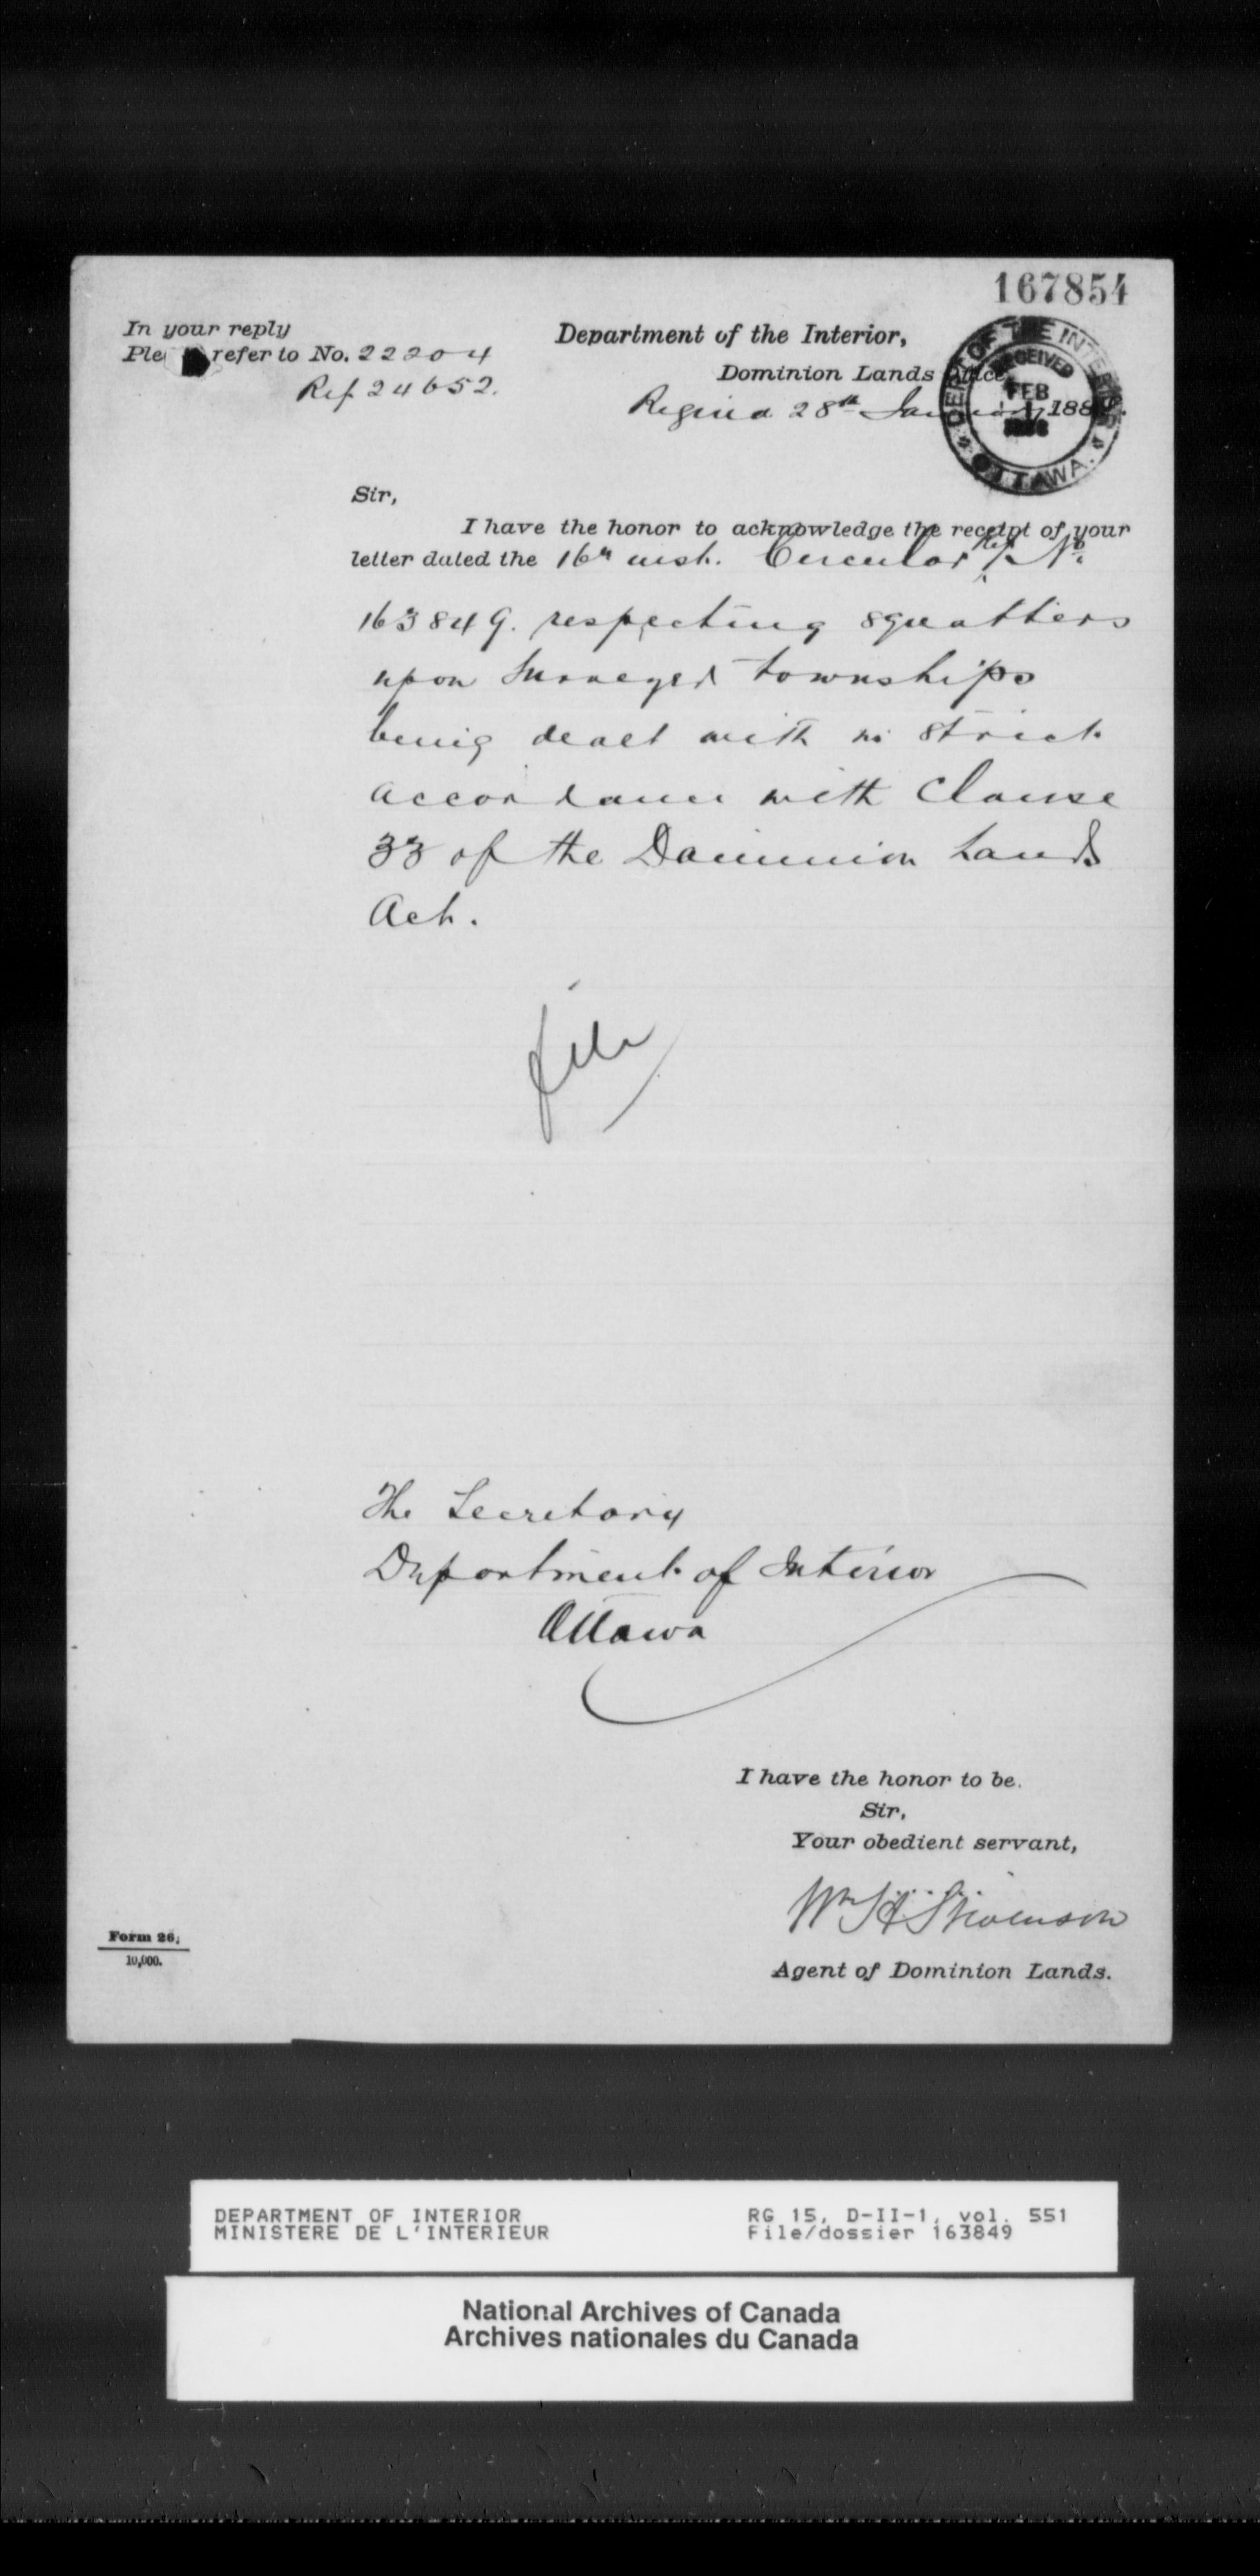 167854
In your reply
Ple refer to No. 22204
Ref. 24652.
Department of the Interior,
Dominion Lands Office
Regina 28th January, 188
DEPT OF THE INTERIOR
RECEIVED
FEB
1
OTTAWA.
Sir,
I have the honor to acknowledge the receipt of your
letter dated the 16th inst. Circular Ref. No.
163849. respecting squatters
upon Surveyed townships
being dealt with in strict
accordance with Clause
33 of the Dominion Lands
Act.
file
The Secretary
Department of Interior
Ottawa
I have the honor to be.
Sir,
Your obedient servant,
Wm H Stevenson
Agent of Dominion Lands.
Form 26.
10,000.
DEPARTMENT OF INTERIOR
MINISTERE DE L'INTERIEUR
RG 15, D-II-1, vol. 551
File/dossier 163849
National Archives of Canada
Archives nationales du Canada